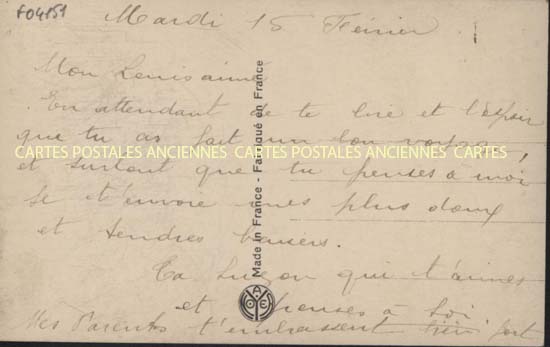 F04151
Mardi 15 Février
Mon Louis aimé
En attendant de te lire et l'espoir
que tu as fait un bon voyage,
CARTES POSTALES ANCIENNES CARTES POSTALES ANCIENNES CARTES
et surtout que tu penses à moi
Je t'envoie mes plus doux
et tendres baisers.
Ta Suzon qui t'aimes
et penses à toi
Mes Parents t'embrassent bien fort
Made in France - Fabriqué en France